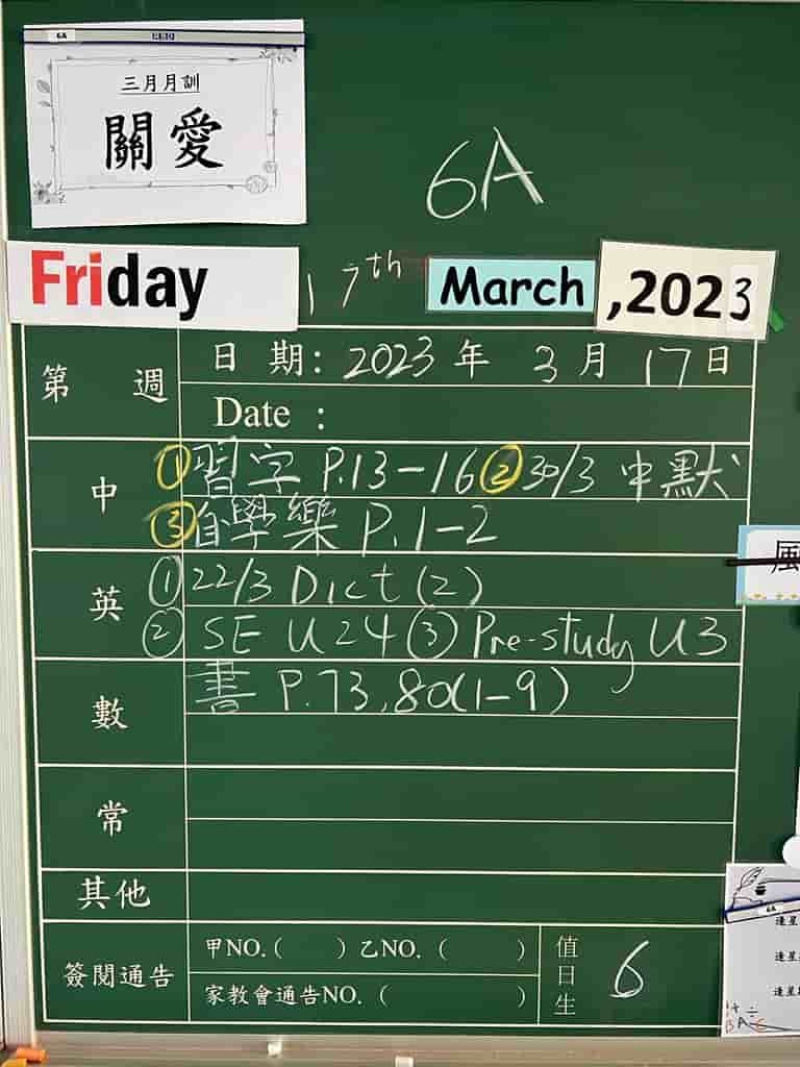 6A
三月月訓
關愛
6A
Friday 17th March ,2023
第 週
日 期: 2023 年 3 月 17 日
Date :
中
① 習字 P.13-16 ② 30/3 中默
③ 自學樂 P.1-2
英
① 22/3 Dict (2)
② SE U24 ③ Pre-study U3
數
書 P.73,80(1-9)
常
其他
簽閱通告
甲NO.( ) 乙NO.( )
家教會通告NO.( )
值日生
6
風
6A